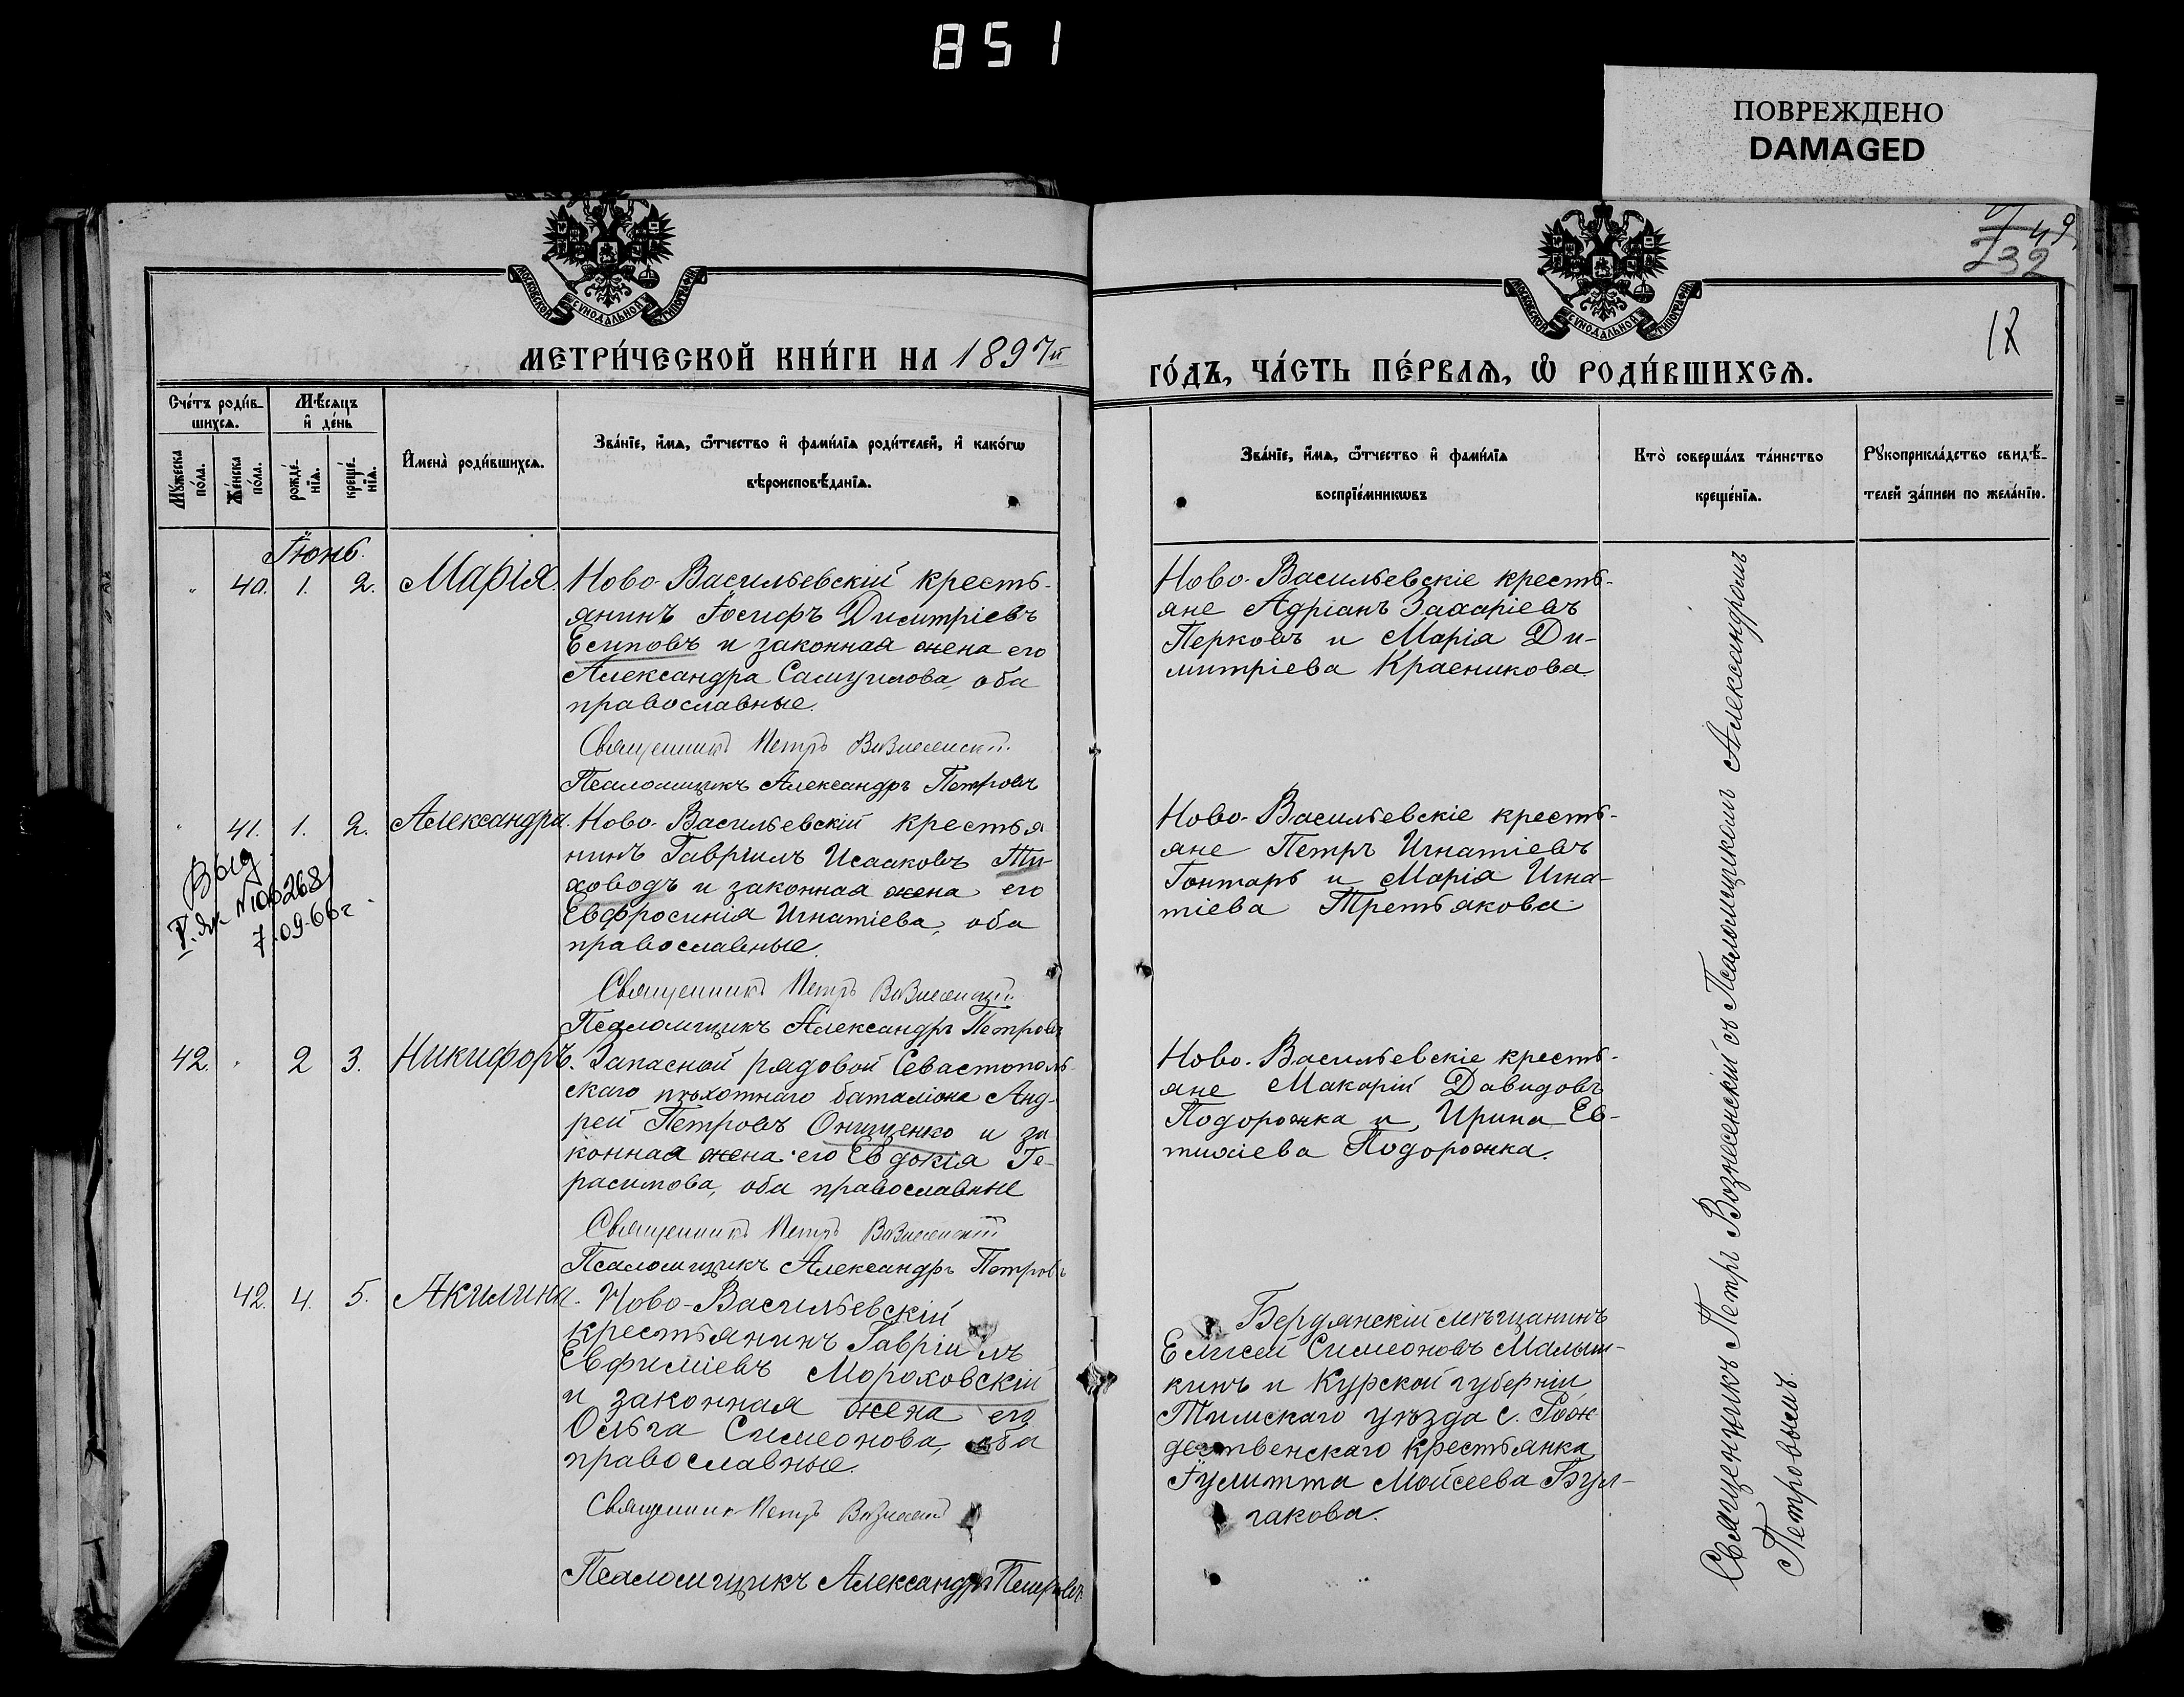 851
ПОВРЕЖДЕНО
DAMAGED
49
232
12
МОСКОВСКОЙ СѴНОДАЛЬНОЙ ТИПОГРАФІИ
МОСКОВСКОЙ СѴНОДАЛЬНОЙ ТИПОГРАФІИ
МЕТРИ́ЧЕСКОЙ КНИ́ГИ НА 1897й
ГО́ДЪ, ЧА́СТЬ ПЕ́РВАѦ, Ѡ҆ РОДИ́ВШИХСѦ.
Сче́тъ роди́в-
шихсѧ.
Мѣ́сѧцъ
и҆ де́нь
Мꙋ́жеска
по́ла.
Же́нска
по́ла.
рожде́-
нїѧ.
креще́-
нїѧ.
И҆мена̀ роди́вшихсѧ.
Зва́нїе, и҆́мѧ, ѻ҆́тчество и҆ фами́лїѧ роди́телей, и҆ како́гѡ
вѣроисповѣ́данїѧ.
Зва́нїе, и҆́мѧ, ѻ҆́тчество и҆ фами́лїѧ
воспрїе́мникѡвъ
Кто̀ соверша́лъ та́инство
креще́нїѧ.
Рꙋкоприкла́дство свидѣ́-
телей за́писи по жела́нїю.
Іюнь.
" 40. 1. 2. Марія.
Ново-Васильевскій кресть-
янинъ Іосифъ Димитріевъ
Есиповъ и законная жена его
Александра Самуилова, оба
православные.
Священникъ Петръ Вознесенскій
Псаломщикъ Александръ Петровъ
Ново-Васильевскіе кресть-
яне Адріанъ Захаріевъ
Перковъ и Марія Ди-
митріева Красникова
" 41. 1. 2. Александра.
Выд
7.09.66г
Ново-Васильевскій крестья
нинъ Гавріилъ Исааковъ Ти-
ховодъ и законная жена его
Евфросинія Игнатіева, оба
православные.
Священникъ Петръ Вознесенскій
Псаломщикъ Александръ Петровъ
Ново-Васильевскіе кресть-
яне Петръ Игнатіевъ
Гонтарь и Марія Игна-
тіева Третьякова
42. " 2 3. Никифоръ.
Запасной рядовой Севастополь-
скаго пѣхотнаго баталіона Анд-
рей Петровъ Онищенко и за
конная жена его Евдокія Ге-
расимова, оба православные
Священникъ Петръ Вознесенскій
Псаломщикъ Александръ Петровъ
Ново-Васильевскіе кресть-
яне Макарій Давидовъ
Подорожка и Ирина Ев-
тихіева Подорожка.
42. 4. 5. Акилина.
Ново-Васильевскій
крестьянинъ Гавріилъ
Евфиміевъ Мороховскій
и законная жена его
Ольга Симеонова, оба
православные.
Священникъ Петръ Вознесенскій
Псаломщикъ Александръ Петровъ
Бердянскій мѣщанинъ
Елисей Симеоновъ Малыш-
кинъ и Курской губерніи
Тимскаго уѣзда с. Рож
дественскаго крестьянка
Іулитта Моисеева Бул-
гакова.
Священникъ Петръ Вознесенскій съ Псаломщикомъ Александромъ
Петровымъ.